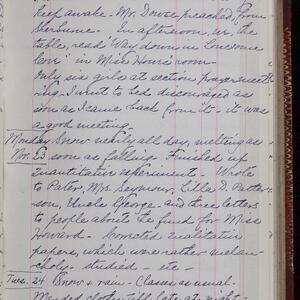 keep awake - Mr. Dowse preached, from
Sherborne. In afternoon, at the
table, read 'Way down in Lonesome
Cove' in Miss Hows' room -
Only six girls at section prayer meet-
ing. I went to bed discouraged as
soon as I came back from it - it was
a good meeting -
Monday Snow nearly all day, melting as
Nov. 23 soon as falling. Finished up
quantitative experiment. - Wrote
to Pater, Mrs. Seymour, Lilla D. Patter-
son, Uncle George - and three letters
to people about the fund for Miss
Howard - Corrected qualitative
papers, which were rather melan-
choly - studied etc -
Tues. 24 Snow & rain - Classes as usual -
Mended clothes till late at night -